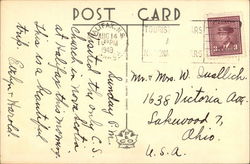 POST CARD
HALIFAX
AUG 14
PM
1949
TOURIST
3 3
Sunday P.M.
Visited the only C.S.
Church in Nova Scotia
at Halifax this morning
This is a beautiful
trip. Harold
Mr. & Mrs. W. Quellich.
1638 Victoria Ave.
Lakewood 7,
Ohio.
U.S.A.